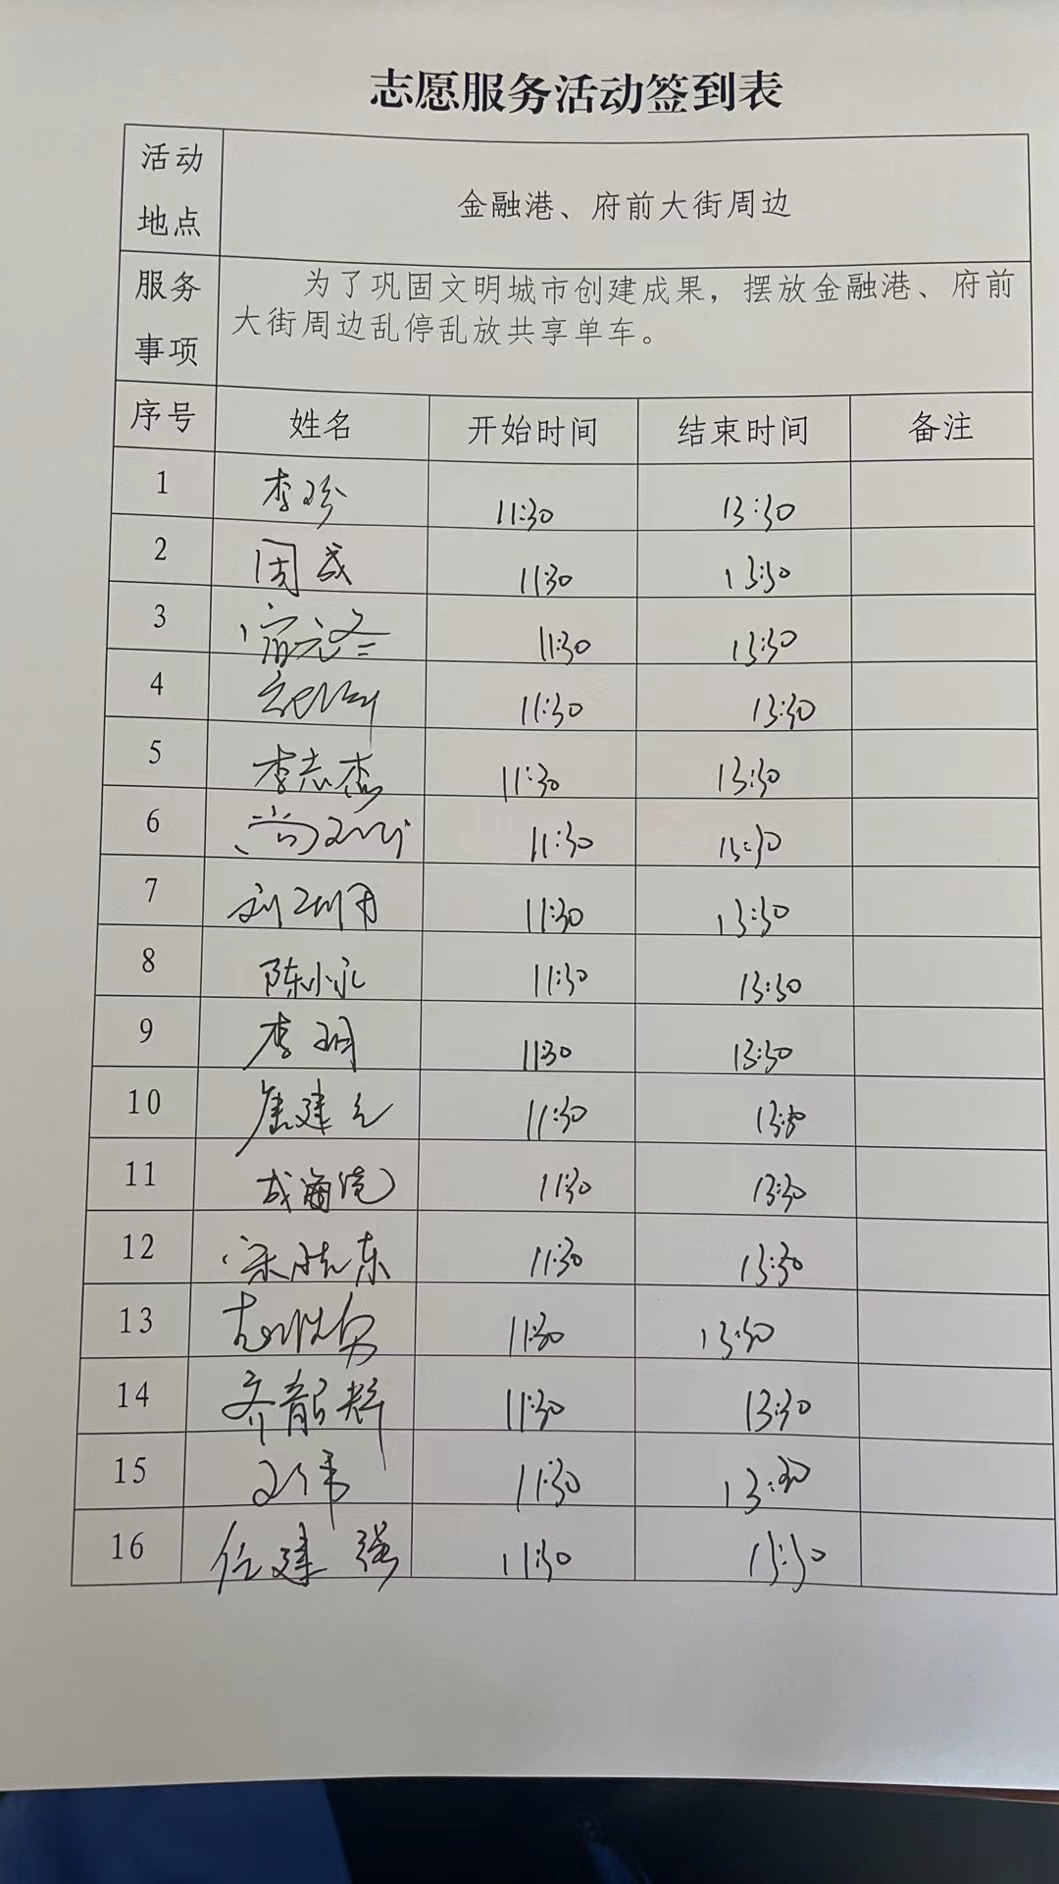 志愿服务活动签到表
活动地点 金融港、府前大街周边
服务事项 为了巩固文明城市创建成果，摆放金融港、府前
大街周边乱停乱放共享单车。
序号 姓名 开始时间 结束时间 备注
1 李珍 11:30 13:30
2 周成 11:30 13:30
3 11:30 13:30
4 11:30 13:30
5 李志杰 11:30 13:30
6 11:30 13:30
7 11:30 13:30
8 陈小永 11:30 13:30
9 李明 11:30 13:30
10 11:30 13:30
11 11:30 13:30
12 11:30 13:30
13 11:30 13:30
14 齐韶辉 11:30 13:30
15 11:30 13:30
16 任建强 11:30 13:30